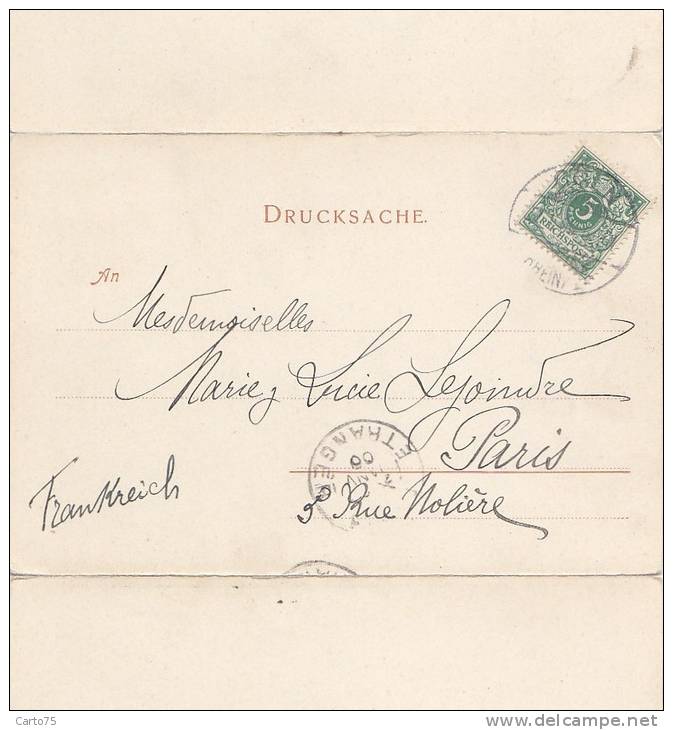 DRUCKSACHE.
5
PFENNIG
REICHSPOST
RHEIN
An
Mesdemoiselles
Marie & Lucie Lejoindre
Paris
Frankreich
Rue Molière
ETRANGER
00
Carto75
www.delcampe.net